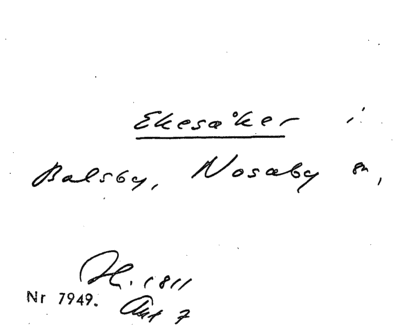 Ekesåker i
Balsby, Nosaby sn,
H. 1811
Nr 7949. Akt 7